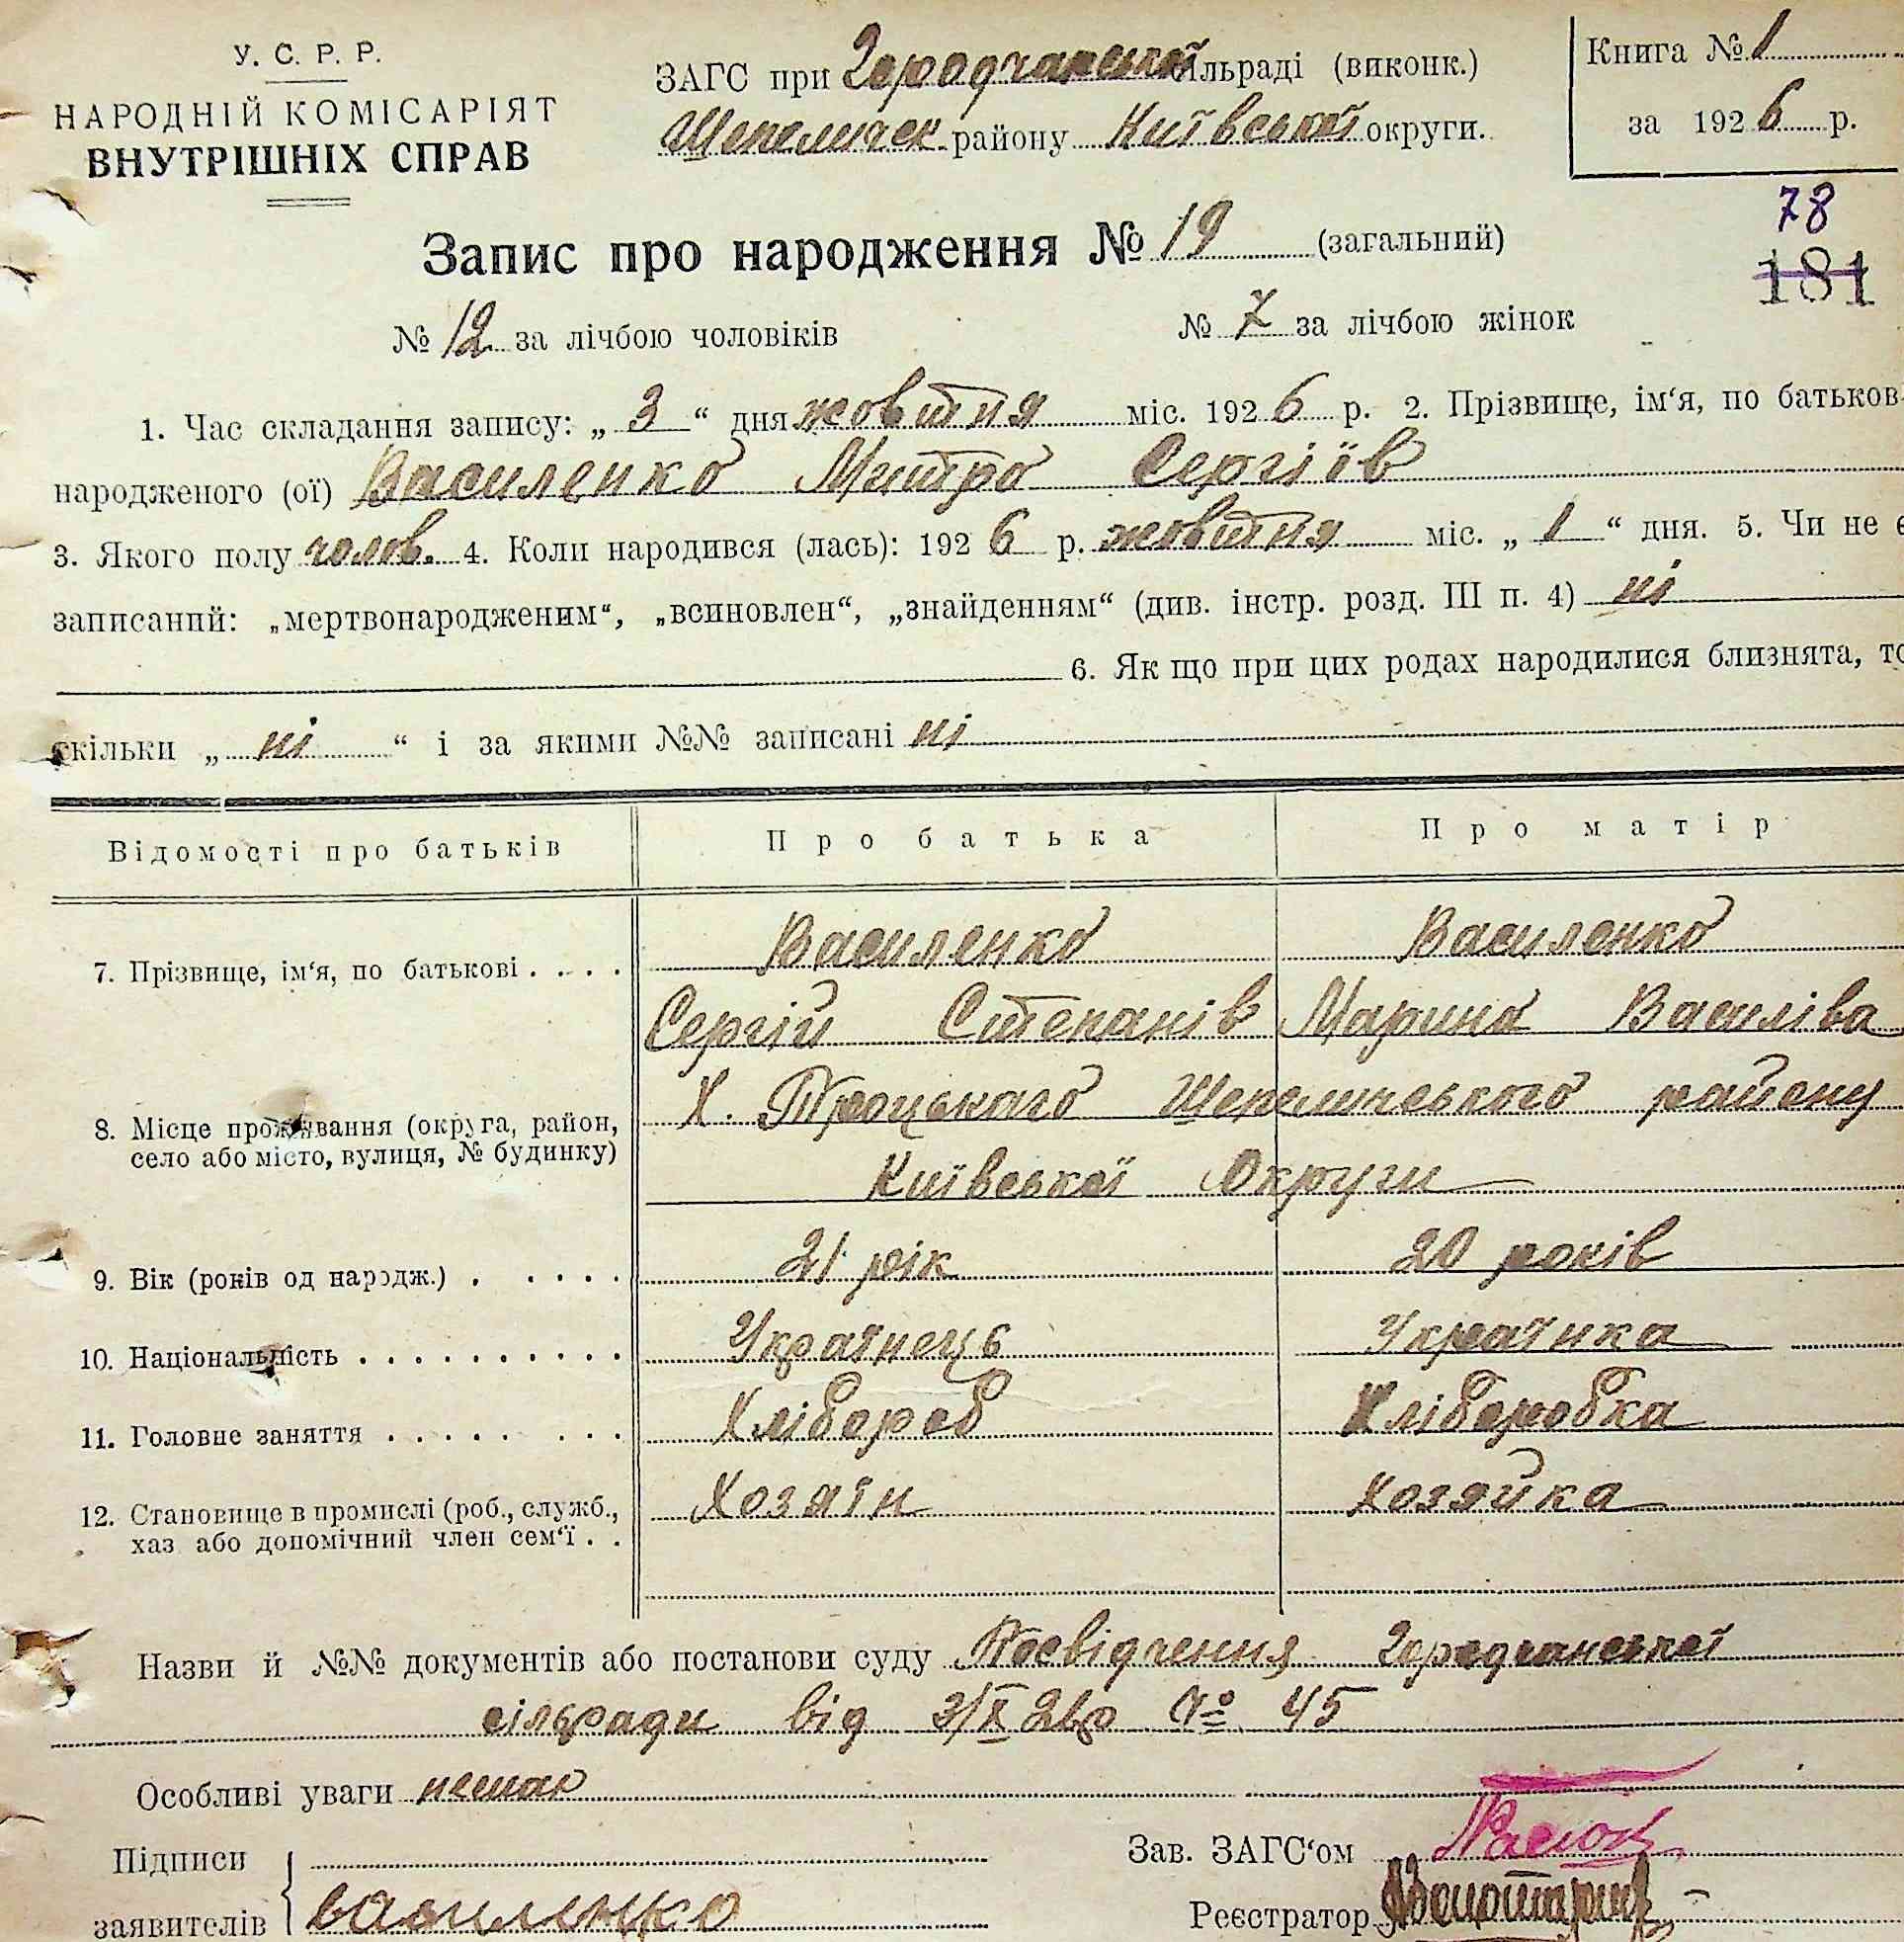 У. С. Р. Р.
НАРОДНІЙ КОМІСАРІЯТ
ВНУТРІШНІХ СПРАВ
ЗАГС при Городчанської сільраді (виконк.)
Шепелическ району Київської округи.
Книга № 1
за 1926 р.
78
181
Запис про народження № 19 (загальний)
№ 12 за лічбою чоловіків № 7 за лічбою жінок
1. Час складання запису: „ 3 “ дня жовтня міс. 1926 р. 2. Прізвище, ім‘я, по батьков-
народженого (ої) Василенко Митро Сергіїв
3. Якого полу чолов. 4. Коли народився (лась): 1926 р. жовтня міс. „ 1 “ дня. 5. Чи не є
записаний: „мертвонародженим“, „всиновлен“, „знайденням“ (див. інстр. розд. III п. 4) ні
6. Як що при цих родах народилися близнята, то
скільки „ ні “ і за якими №№ записані ні
Відомості про батьків Про батька Про матір
7. Прізвище, ім‘я, по батькові . . . . Василенко Василенко
Сергій Степанів Марина Василіва
Х. Троцького Шепелического району
8. Місце проживання (округа, район,
село або місто, вулиця, № будинку)
Київської Округи
9. Вік (років од народж.) . . . . . 21 рік 20 років
10. Національність . . . . . . . . . . Українець Українка
11. Головне заняття . . . . . . . . Хлібороб Хліборобка
12. Становище в промислі (роб., служб., Хозяїн Хозяйка
хаз або допомічний член сем‘ї . .
Назви й №№ документів або постанови суду Посвідчення Городчанської
сільради від 3/X 26р № 45
Особливі уваги немає
Підписи
заявителів Василенко
Зав. ЗАГС‘ом
Реєстратор